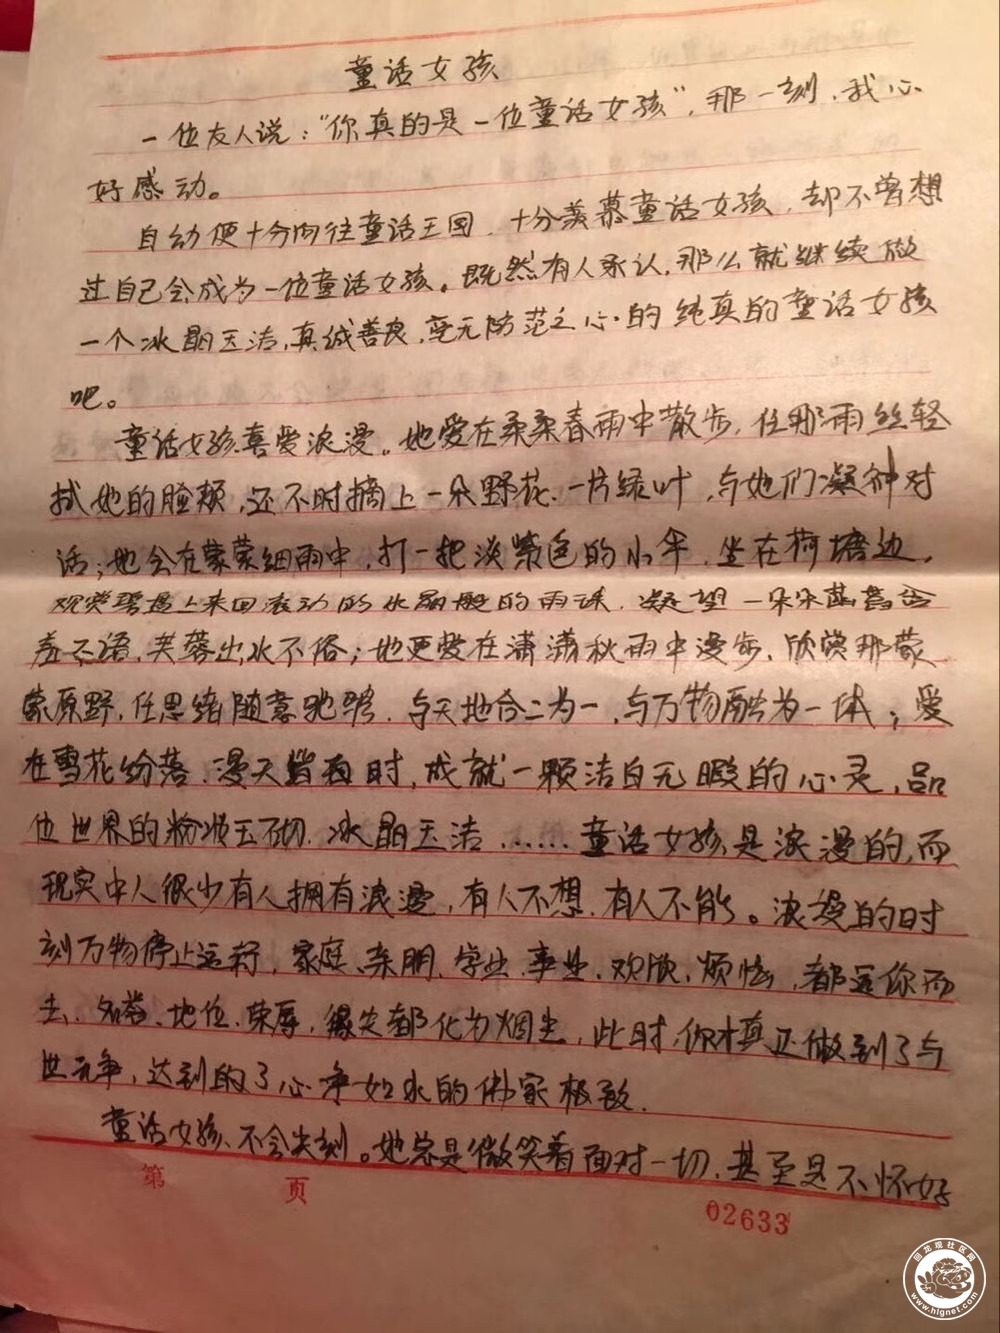 童话女孩
一位友人说："你真的是一位童话女孩"，那一刻，我心
好感动。
自幼便十分向往童话王国，十分羡慕童话女孩，却不曾想
过自己会成为一位童话女孩。既然有人承认，那么就继续做
一个冰晶玉洁，真诚善良，毫无防范之心的纯真的童话女孩
吧。
童话女孩喜爱浪漫。她爱在柔柔春雨中散步，任那雨丝轻
拭她的脸颊，还不时摘上一朵野花、一片绿叶，与她们凝神对
话；她会在蒙蒙细雨中，打一把淡紫色的小伞，坐在荷塘边，
观赏碧盘上来回滚动的水晶般的雨珠，凝望一朵朵菡萏含
羞不语，芙蓉出水不俗；她更爱在潇潇秋雨中漫步，欣赏那蒙
蒙原野，任思绪随意驰骋，与天地合二为一，与万物融为一体；爱
在雪花纷落、漫天皆白时，成就一颗洁白无暇的心灵，品
位世界的粉妆玉砌，冰晶玉洁……童话女孩是浪漫的，而
现实中人很少有人拥有浪漫，有人不想，有人不能。浪漫的时
刻万物停止运行，家庭、亲朋、学业、事业、欢欣、烦恼，都远你而
去、名誉、地位、荣辱、得失都化为烟尘，此时，你才真正做到了与
世无争，达到的了心净如水的佛家极致.
童话女孩不会尖刻。她总是微笑着面对一切，甚至是不怀好
第 页
02633
回龙观社区网
www.hlgnet.com